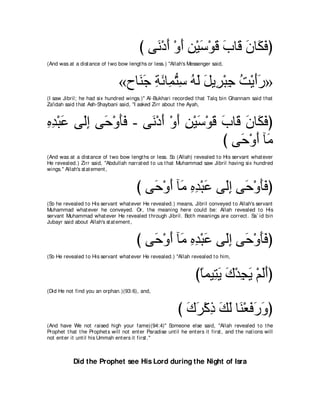 (فَكَانَ قَابَ قَوْسَيْنِ أَوْ أَدْنَى )
(And was at a distance of two bow lengths or less.) "Allah's Messenger said,
«رَأَيْتُ جِبْرِيلَ لَهُ سِتُّمِائَةِ جَنَاحٍ»
(I saw Jibril; he had six hundred wings.)" Al-Bukhari recorded that Talq bin Ghannam said that
Za'idah said that Ash-Shaybani said, "I asked Zirr about the Ayah,
(فَكَانَ قَابَ قَوْسَيْنِ أَوْ أَدْنَى - فَأَوْحَى إِلَى عَبْدِهِ
مَآ أَوْحَى )
(And was at a distance of two bow lengths or less. So (Allah) revealed to His servant whatever
He revealed.) Zirr said, "Abdullah narrated to us that Muhammad saw Jibril having six hundred
wings." Allah's statement,
(فَأَوْحَى إِلَى عَبْدِهِ مَآ أَوْحَى )
(So he revealed to His servant whatever He revealed.) means, Jibril conveyed to Allah's servant
Muhammad whatever he conveyed. Or, the meaning here could be: Allah revealed to His
servant Muhammad whatever He revealed through Jibril. Both meanings are correct. Sa`id bin
Jubayr said about Allah's statement,
(فَأَوْحَى إِلَى عَبْدِهِ مَآ أَوْحَى )
(So He revealed to His servant whatever He revealed.) "Allah revealed to him,
(أَلَمْ يَجِدْكَ يَتِيماً)
(Did He not find you an orphan.)(93:6), and,
(وَرَفَعْنَا لَكَ ذِكْرَكَ )
(And have We not raised high your fame)(94:4)" Someone else said, "Allah revealed to the
Prophet that the Prophets will not enter Paradise until he enters it first, and the nations will
not enter it until his Ummah enters it first."
Did the Prophet see His Lord during the Night of Isra